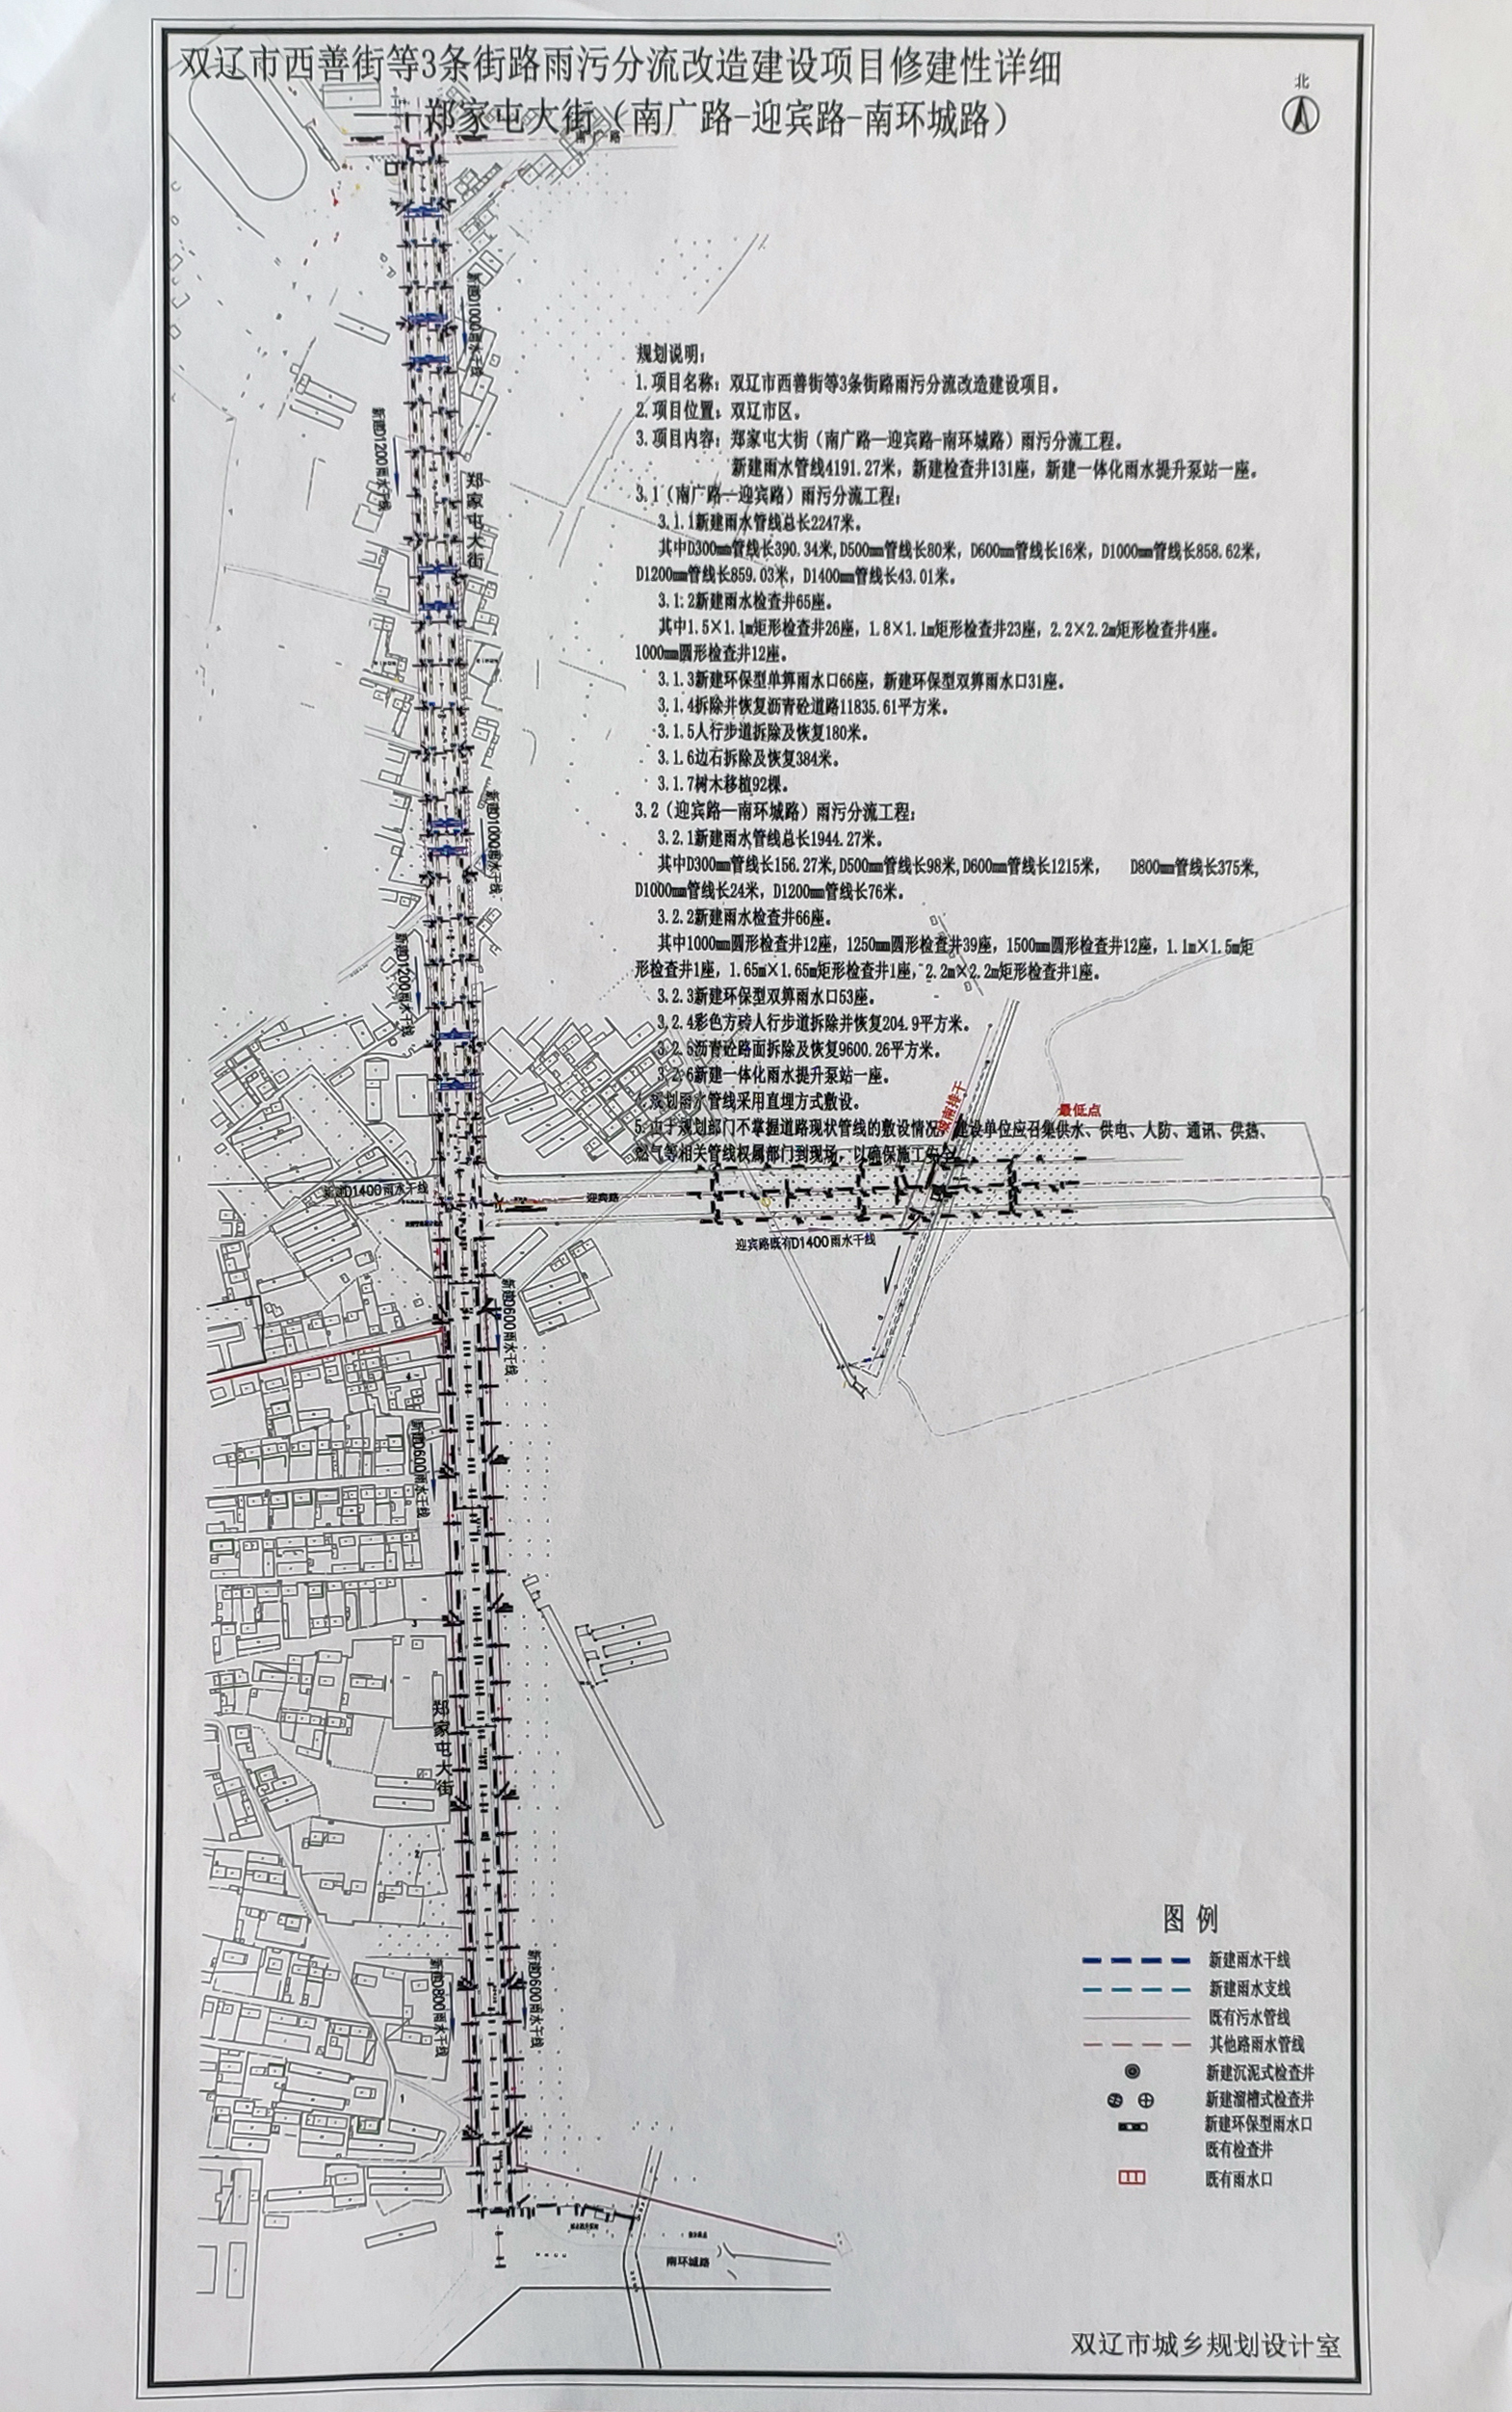 双辽市西善街等3条街路雨污分流改造建设项目修建性详细
郑家屯大街（南广路-迎宾路-南环城路）
北
规划说明：
1.项目名称：双辽市西善街等3条街路雨污分流改造建设项目。
2.项目位置：双辽市区。
3.项目内容：郑家屯大街（南广路—迎宾路-南环城路）雨污分流工程。
新建雨水管线4191.27米，新建检查井131座，新建一体化雨水提升泵站一座。
3.1（南广路—迎宾路）雨污分流工程：
3.1.1新建雨水管线总长2247米。
其中D300mm管线长390.34米,D500mm管线长80米，D600mm管线长16米，D1000mm管线长858.62米，
D1200mm管线长859.03米，D1400mm管线长43.01米。
3.1.2新建雨水检查井65座。
其中1.5×1.1m矩形检查井26座，1.8×1.1m矩形检查井23座，2.2×2.2m矩形检查井4座。
1000mm圆形检查井12座。
3.1.3新建环保型单箅雨水口66座，新建环保型双箅雨水口31座。
3.1.4拆除并恢复沥青砼道路11835.61平方米。
3.1.5人行步道拆除及恢复180米。
3.1.6边石拆除及恢复384米。
3.1.7树木移植92棵。
3.2（迎宾路—南环城路）雨污分流工程：
3.2.1新建雨水管线总长1944.27米。
其中D300mm管线长156.27米,D500mm管线长98米,D600mm管线长1215米， D800mm管线长375米,
D1000mm管线长24米，D1200mm管线长76米。
3.2.2新建雨水检查井66座。
其中1000mm圆形检查井12座，1250mm圆形检查井39座，1500mm圆形检查井12座，1.1m×1.5m矩
形检查井1座，1.65m×1.65m矩形检查井1座，2.2m×2.2m矩形检查井1座。
3.2.3新建环保型双箅雨水口53座。
3.2.4彩色方砖人行步道拆除并恢复204.9平方米。
3.2.5沥青砼路面拆除及恢复9600.26平方米。
3.2.6新建一体化雨水提升泵站一座。
4.规划雨水管线采用直埋方式敷设。
5.由于规划部门不掌握道路现状管线的敷设情况，建设单位应召集供水、供电、人防、通讯、供热、
燃气等相关管线权属部门到现场，以确保施工安全。
新建D1000雨水干线
新建D1200雨水干线
郑家屯大街
新建D1000雨水干线
新建D1200雨水干线
城南排干
最低点
新建D1400雨水干线
迎宾路
迎宾路既有D1400雨水干线
新建D600雨水干线
新建D600雨水干线
郑家屯大街
新建D800雨水干线
新建D600雨水干线
南环城路
图 例
新建雨水干线
新建雨水支线
既有污水管线
其他路雨水管线
新建沉泥式检查井
新建溜槽式检查井
新建环保型雨水口
既有检查井
既有雨水口
双辽市城乡规划设计室